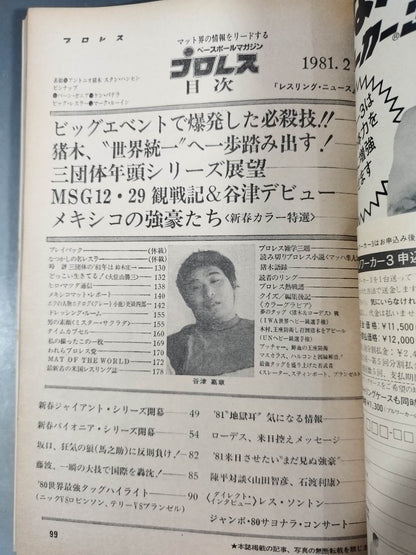 プロレス
マット界の情報をリードする
ベースボールマガジン
プロレス
1981.2
目次
「レスリング・ニュース」
表紙●アントニオ猪木 スタン・ハンセン
ピンナップ
●バーン・ガニア●ケン・パテラ
ビッグ・レスラー●マーク・ルーイン
ビッグエベントで爆発した必殺技!!
猪木、〝世界統一〟へ一歩踏み出す!
三団体年頭シリーズ展望
MSG12・29 観戦記&谷津デビュー
メキシコの強豪たち〈新春カラー特選〉
プレイバック (休載)
なつかしの名レスラー (休載)
時評 三団体の'81年は 鈴木庄一 130
どっこい生きてる 132
ヒロ・マツダ通信 138
メキシコマット・レポート 140
142
ドレッシング・ルーム 155
男の素顔(ミスター・サクラダ) 160
タイムカプセル 160
私の撮ったこの一枚 166
われらプロレス党 170
MAT OF THE WORLD 172
最新名の米国レスリング誌 178
谷津 嘉章
プロレス雑学三題
読み切りプロレス小説
猪木語録
読者のリング
プロレス熱戦譜
クイズ/編集後記
〈カラーグラビア〉
(IWA世界ヘビー級選手権)
(UNヘビー級選手権)
ブッチャー、鮮血の王座防衛
マスカラス、ハルコンと因縁対決
最強タッグを盛り上げた若武者
新春ジャイアント・シリーズ開幕 49
新春パイオニア・シリーズ開幕 54
坂口、狂気の狼(馬之助)に反則負け! 82
藤波、一瞬の大技で国際を轟沈! 85
'80世界最強タッグハイライト 90
(ニックVSロビンソン、テリーVSブランゼル)
'81〝地獄耳〟気になる情報
ローデス、来日控えメッセージ
'81来日させたい〝まだ見ぬ強豪〟
陳平対談〈山田智彦、石渡利康〉
〈ダイレクト・インタビュー〉レス・ソントン
ジャンボ・80サヨナラ・コンサート
★本誌掲載の記事、写真の無断転載を禁じ
99
3は
力を
増強
ます
お申込み後
ワーカー3 申込
1台送って
¥11,500
¥12,500
¥13,300